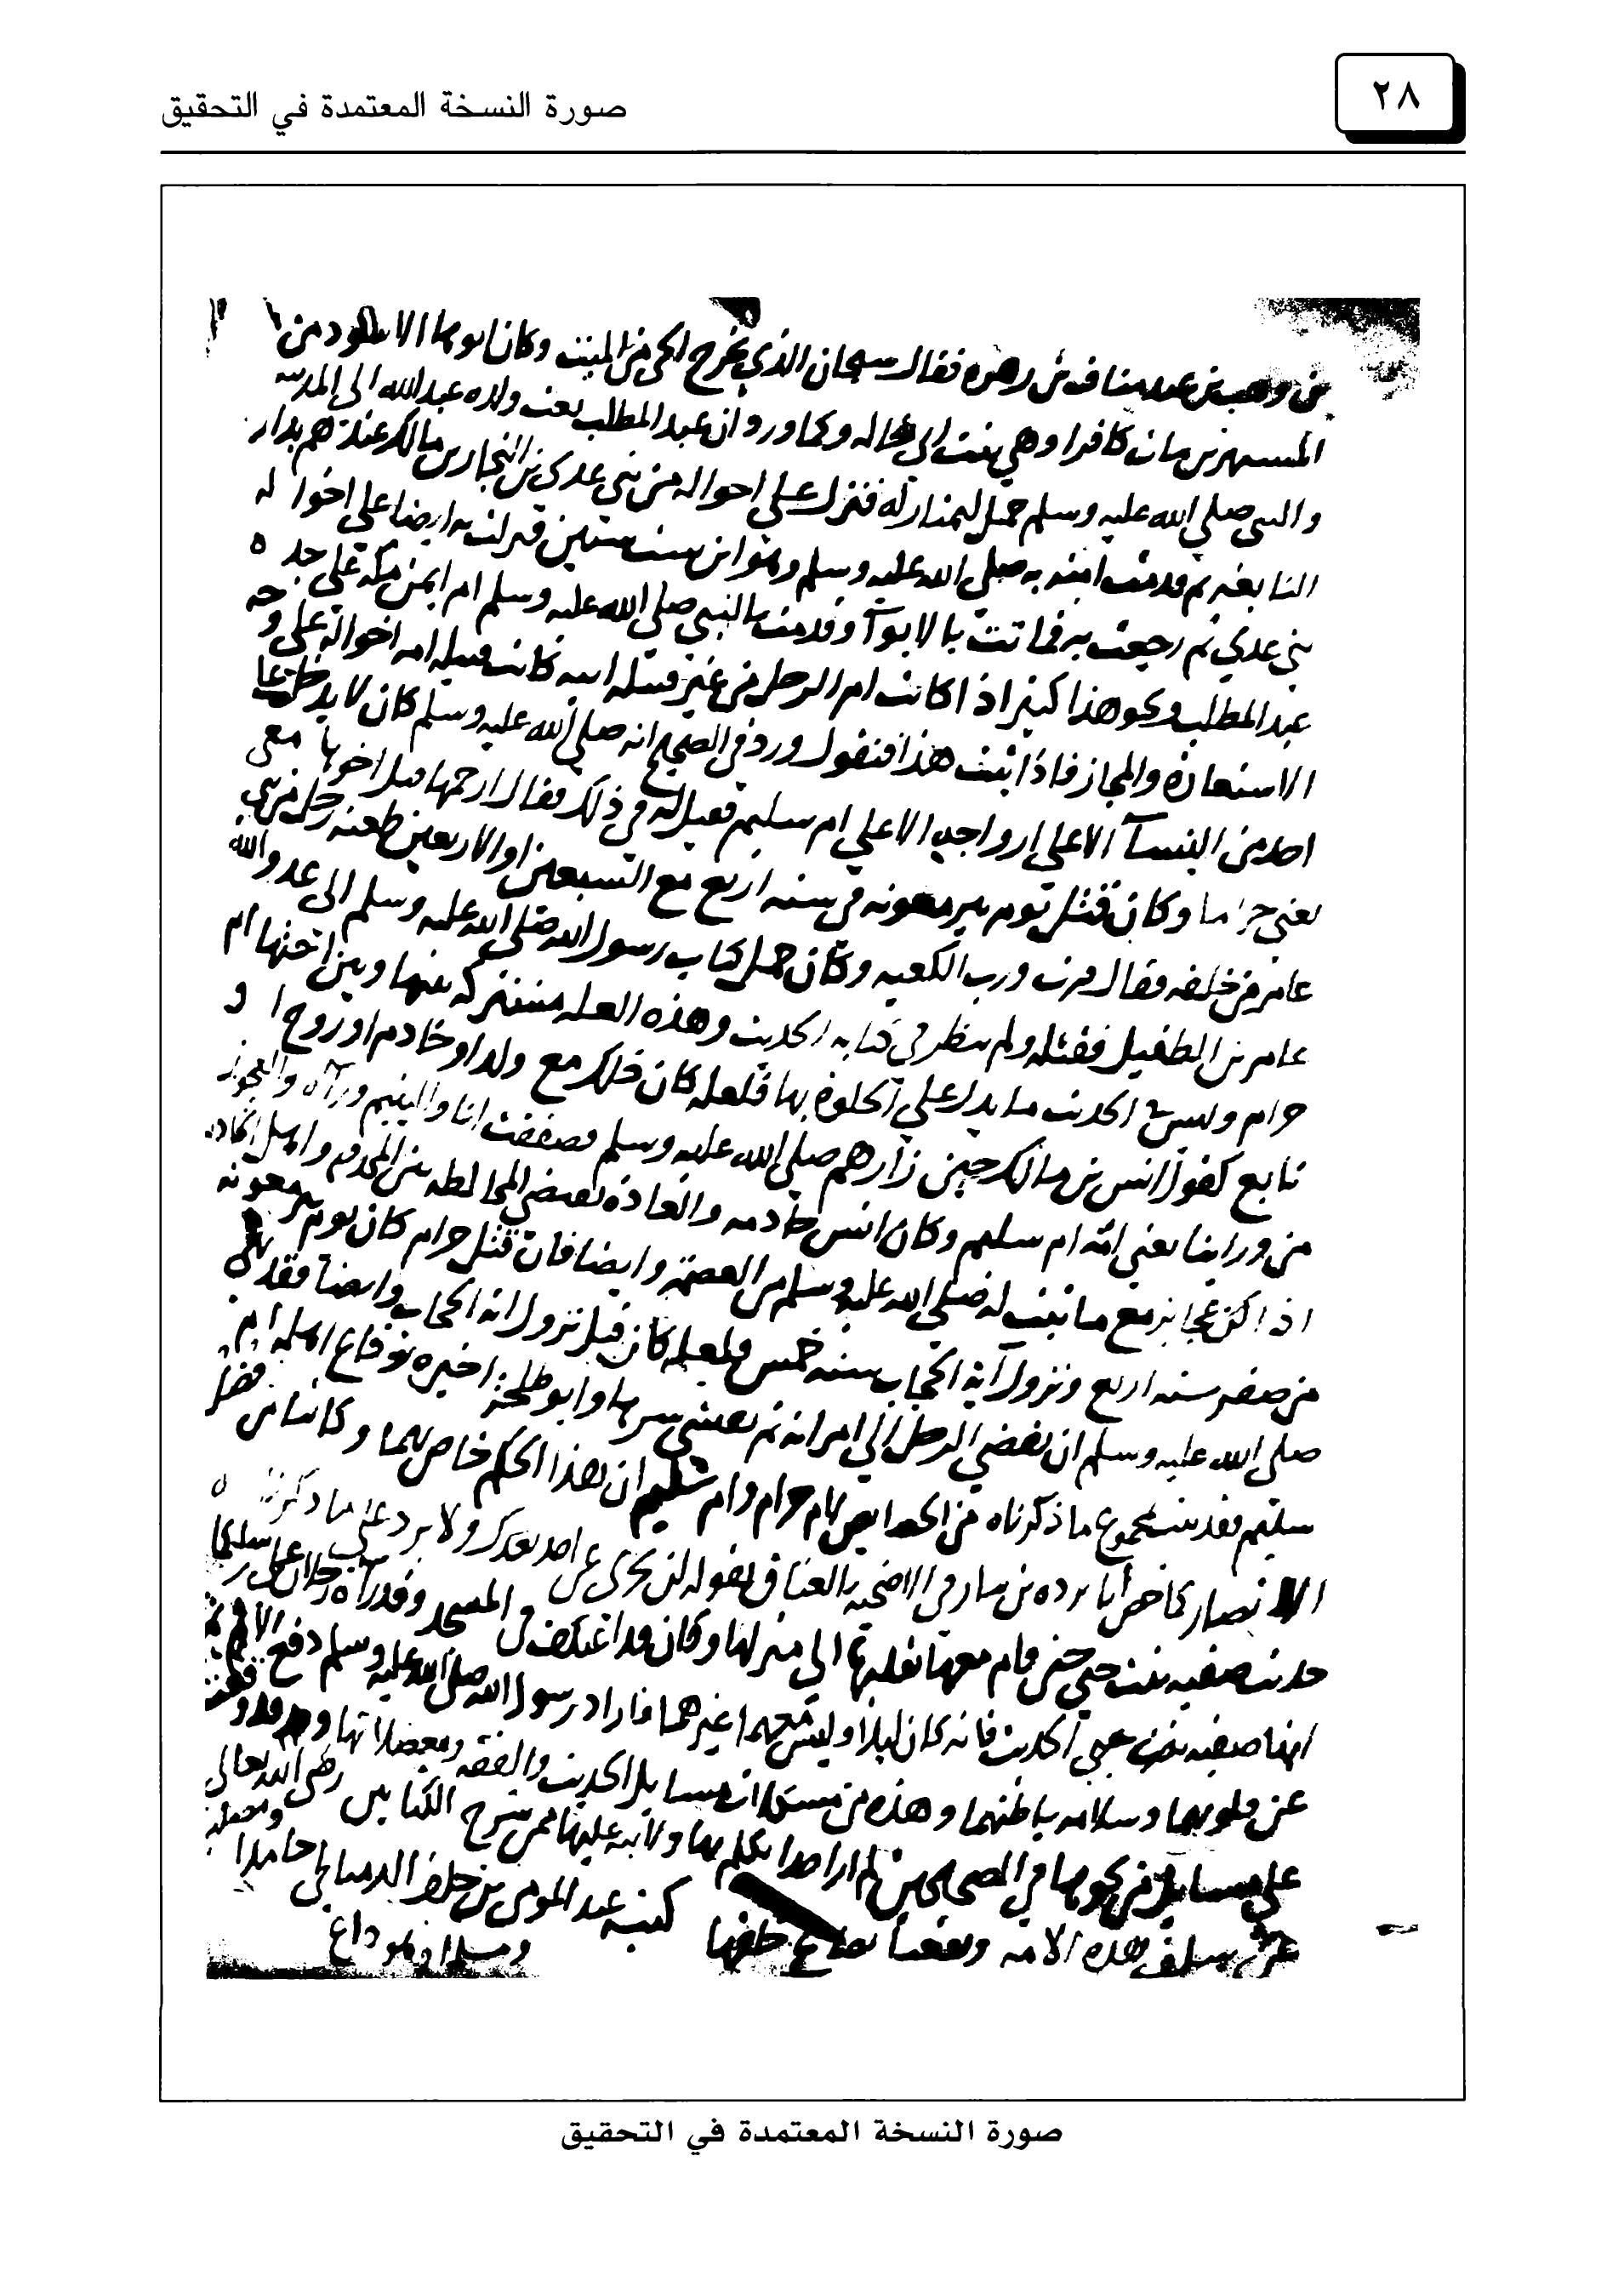 ٢٨
صورة النسخة المعتمدة في التحقيق
بن وهب بن عبد مناف بن زهرة فقال سبحان الذي يخرج الحي من الميت وكان ابوها الاسود من
المستهزين مات كافرا وهي بنت الى خاله وكما ورد ان عبد المطلب بعث ولده عبد الله الى المدينه
والنبي صلى الله عليه وسلم حمل ليمتار له فنزل على اخواله من بني عدي بن النجار بن مالك عندهم بدار
النابغه ثم قدمت امنه به صلى الله عليه وسلم وهو ابن ست سنين فنزلت به ايضا على اخواله
بني عدي ثم رجعت به فماتت بالابوآ وقدمت بالنبي صلى الله عليه وسلم ام ايمن مكة على جده
عبد المطلب ونحو هذا كثير اذا كانت ام الرجل من غير قبيلة ابيه كانت قبيله امه اخواله على وجه
الاستعارة والمجاز فاذا ثبت هذا فنقول ورد في الصحيح انه صلى الله عليه وسلم كان لا يدخل على
احد من النسآ الا على ازواجه الا على ام سليم فقيل له في ذلك فقال ارحمها قتل اخوها معي
يعني حراما وكان قتل يوم بير معونه في سنه اربع مع السبعين او الاربعين طعنه رجل من بني
عامر من خلفه فقال فزت ورب الكعبه وكان حمل كتاب رسول الله صلى الله عليه وسلم الى عدو الله
عامر بن الطفيل فقتله ولم ينظر في كتابه الحديث وهذه العله مشتركه بينها وبين اختها ام
حرام وليس في الحديث ما يدل على الخلوة بها فلعله كان ذلك مع ولد او خادم او زوج او
تابع كقول انس بن مالك حين زارهم صلى الله عليه وسلم فصففت انا واليتيم ورآه والعجوز
من ورائنا يعني امه ام سليم وكان انس خادمه والعادة تقتضي المخالطه بين المخدوم واهل الخادم
اذا كن عجايز مع ما ثبت له صلى الله عليه وسلم من العصمة وايضا فان قتل حرام كان يوم بير معونه
من صفر سنه اربع ونزول آية الحجاب سنه خمس فلعله كان قبل نزول اية الحجاب وايضا فقد
صلى الله عليه وسلم ان يفضي الرجل الى امراته ثم
سليم فقد ثبت بمجموع ما ذكرناه من الخصايص لام حرام وام سليم ان هذا الحكم خاص بهما وكانتا من
الانصار كما خص ابا برده بن نيار في الاضحيه بالعناق بقوله لن تجزي عن احد بعدك ولا يرد على ما ذكرنا
حديث صفيه بنت حيي حين قام معها يقلبها الى منزلها وكان قد اعتكف في المسجد وقد رآه رجلان
انها صفيه بنت حيي الحديث فانه كان ليلا وليس معهما غيرهما فاراد رسول الله صلى الله عليه وسلم دفع
عن قلوبهما وسلامه باطنهما وهذه من مشكلات مسايل الحديث والفقه ومعضلاتها
على مسايل من نحوها في الصحيحين لم ار احدا تكلم بها ولا نبه عليها ممن شرح الكتابين رضي الله تعالى
عن سلف هذه الامه ونفعنا خلفها كتبه عبد المومن بن خلف الدمياطي حامدا
صورة النسخة المعتمدة في التحقيق